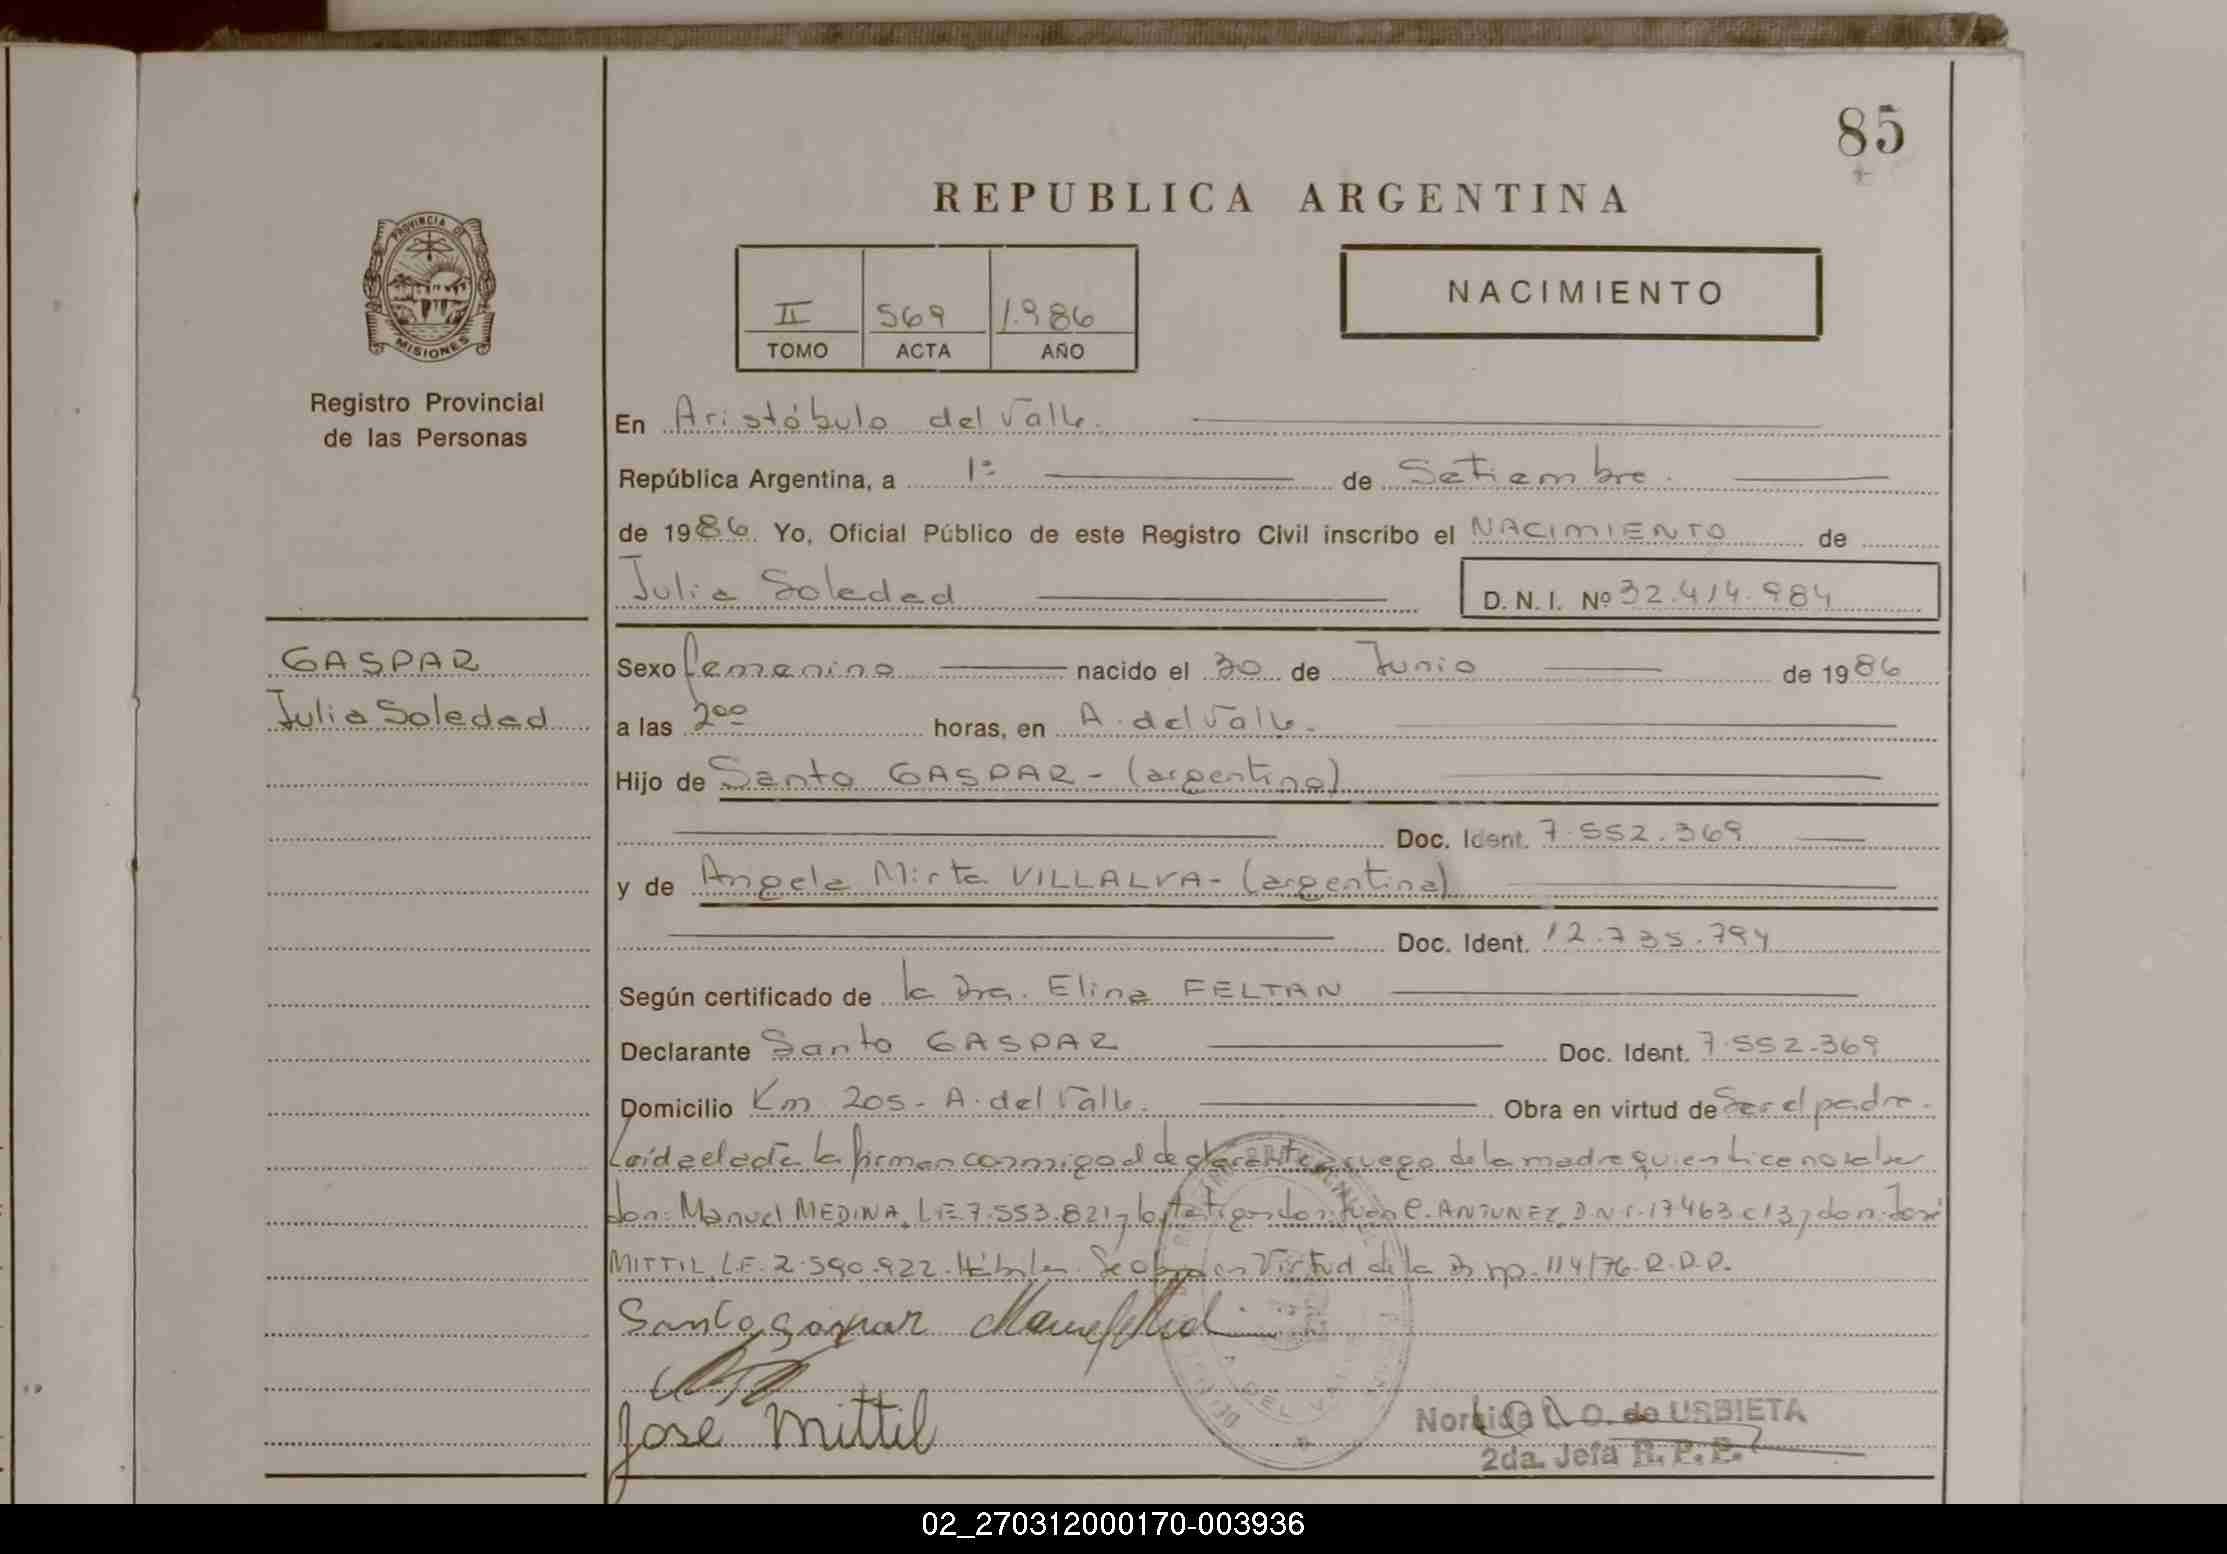 85
REPUBLICA ARGENTINA
PROVINCIA DE
MISIONES
II 569 1.986
TOMO ACTA AÑO
NACIMIENTO
Registro Provincial
de las Personas
En Aristóbulo del Valle.
República Argentina, a 1º de Setiembre.
de 1986. Yo, Oficial Público de este Registro Civil inscribo el NACIMIENTO de
Julia Soledad D. N. I. Nº 32.414.984
GASPAR
Julia Soledad
Sexo femenino nacido el 30 de Junio de 1986
a las 2⁰⁰ horas, en A. del Valle.
Hijo de Santo GASPAR - (argentino)
Doc. Ident. 7.552.369
y de Angela Mirta VILLALVA - (argentina)
Doc. Ident. 12.735.794
Según certificado de la Dra. Elina FELTAN
Declarante Santo GASPAR Doc. Ident. 7.552.369
Domicilio Km 205 - A. del Valle. Obra en virtud de Ser el padre.
Leída el acta la firman conmigo el declarante a ruego de la madre quien dice no saber
don: Manuel MEDINA, L.E. 7.553.821 y los testigos don: Juan C. ANTUNEZ, D.N.I. 17.463. y don: José
MITTIL, L.E. 2.590.922. Hábiles. Se obra en Virtud de la Disp. 114/76. R.D.P.
Santo Gaspar
Jose Mittil
DEL VALLE
O. de URBIETA
2da. Jefa R. P. P.
02_270312000170-003936